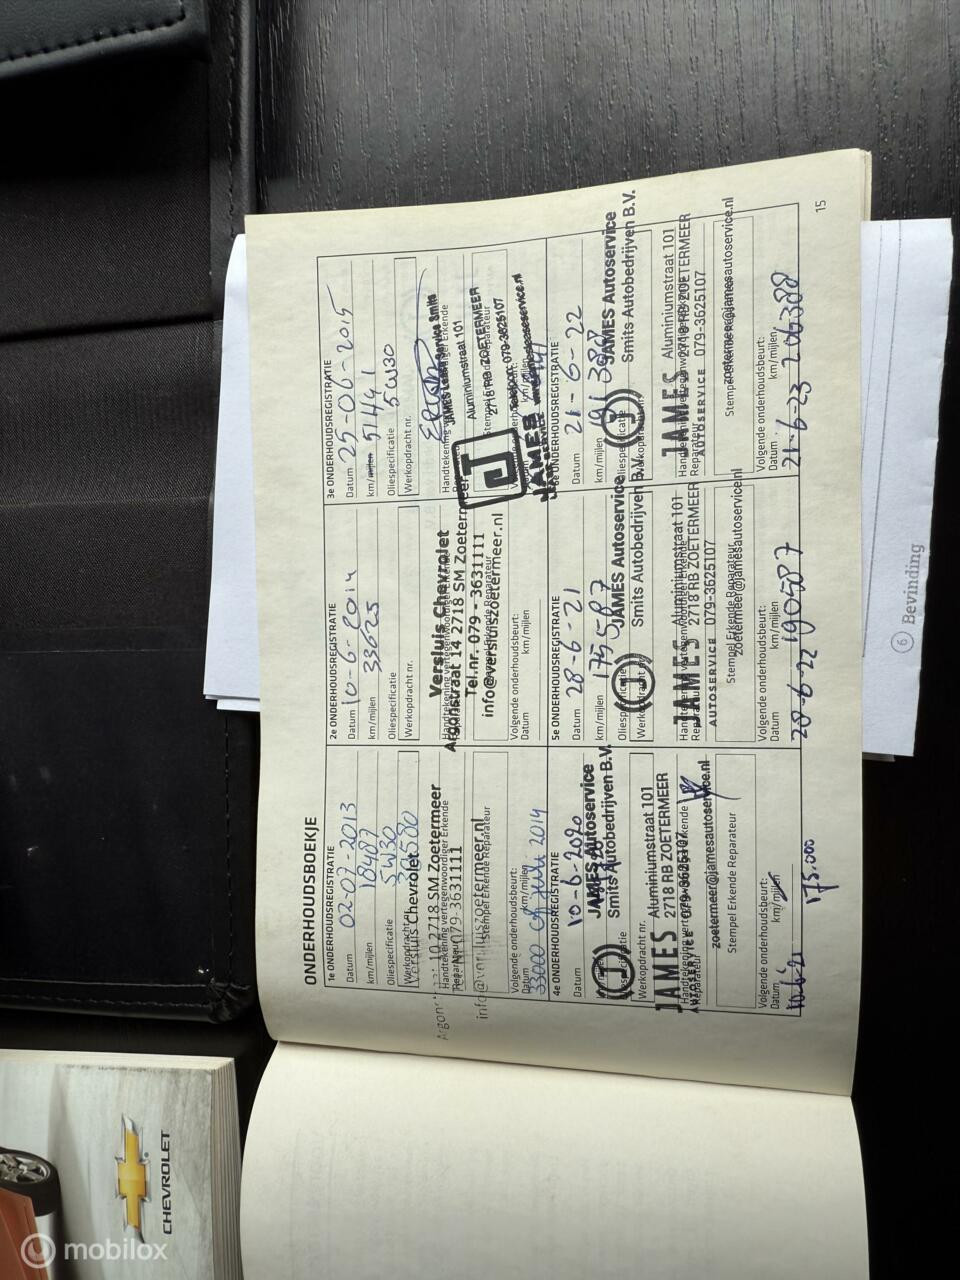 ONDERHOUDSBOEKJE
1e ONDERHOUDSREGISTRATIE
Datum 02-07-2013
km/mijlen 18487
Oliespecificatie 5W30
Werkopdracht nr.
Versluis Chevrolet
10 2718 SM Zoetermeer
Handtekening vertegenwoordiger Erkende
079-3631111
info@versluiszoetermeer.nl
Stempel Erkende Reparateur
Volgende onderhoudsbeurt:
Datum km/mijlen
33000 of juli 2014
2e ONDERHOUDSREGISTRATIE
Datum 10-6-2014
km/mijlen 33625
Oliespecificatie
Werkopdracht nr.
Versluis Chevrolet
Handtekening vertegenwoordiger Erkende
Argonstraat 14 2718 SM Zoetermeer
Tel.nr. 079 - 3631111
Stempel Erkende Reparateur
info@versluiszoetermeer.nl
Volgende onderhoudsbeurt:
Datum km/mijlen
3e ONDERHOUDSREGISTRATIE
Datum 25-06-2015
km/mijlen 51441
Oliespecificatie 5W30
Werkopdracht nr.
Handtekening vertegenwoordiger Erkende
Aluminiumstraat 101
2718 RB ZOETERMEER
079-3625107
JAMES
4e ONDERHOUDSREGISTRATIE
Datum 10-6-2020
km/mijlen
JAMES Autoservice
Smits Autobedrijven B.V.
Oliespecificatie
Werkopdracht nr.
Aluminiumstraat 101
2718 RB ZOETERMEER
JAMES
AUTOSERVICE
079-3625107
Handtekening vertegenwoordiger Erkende
Reparateur
zoetermeer@jamesautoservice.nl
Stempel Erkende Reparateur
Volgende onderhoudsbeurt:
Datum km/mijlen
175.000
5e ONDERHOUDSREGISTRATIE
Datum 28-6-21
km/mijlen 175587
Oliespecificatie
JAMES Autoservice
Werkopdracht nr.
Smits Autobedrijven B.V.
Aluminiumstraat 101
Handtekening vertegenwoordiger Erkende
JAMES
2718 RB ZOETERMEER
Reparateur
AUTOSERVICE
079-3625107
Stempel Erkende Reparateur
zoetermeer@jamesautoservice.nl
Volgende onderhoudsbeurt:
Datum km/mijlen
28-6-22 190587
ONDERHOUDSREGISTRATIE
Datum 21-6-22
km/mijlen 191388
JAMES Autoservice
Oliespecificatie
Smits Autobedrijven B.V.
Werkopdracht nr.
Aluminiumstraat 101
Handtekening vertegenwoordiger Erkende
JAMES
2718 RB ZOETERMEER
Reparateur
AUTOSERVICE
079-3625107
Stempel Erkende Reparateur
zoetermeer@jamesautoservice.nl
Volgende onderhoudsbeurt:
Datum km/mijlen
21-6-23 206388
15
6 Bevinding
CHEVROLET
mobilox